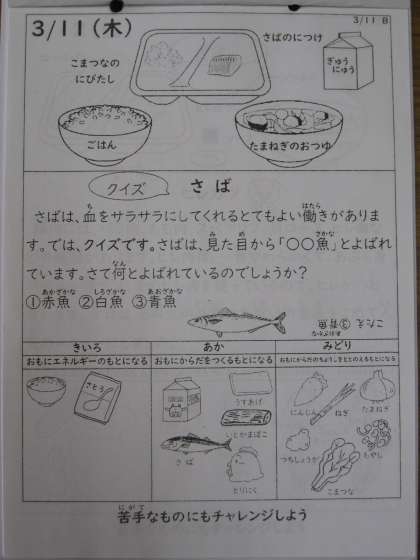 3/11(木)
3/11 B
さばのにつけ
こまつなの
にびたし
ぎゅう
にゅう
ごはん
たまねぎのおつゆ
クイズ
さば
さばは、血をサラサラにしてくれるとてもよい働きがありま
す。では、クイズです。さばは、見た目から「〇〇魚」とよばれ
ています。さて何とよばれているのでしょうか?
①赤魚 ②白魚 ③青魚
こたえ ③青魚
きいろ
あか
みどり
おもにエネルギーのもとになる
おもにからだをつくるもとになる
おもにからだのちょうしをととのえるもとになる
さとう
うすあげ
いとかまぼこ
さば
とりにく
にんじん
ねぎ
たまねぎ
つちしょうが
もやし
こまつな
苦手なものにもチャレンジしよう